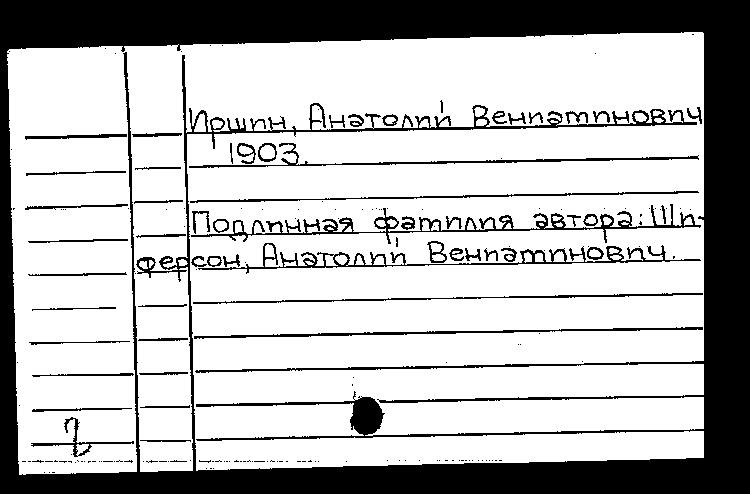 Иршин, Анатолий Вениаминович
1903.
Подлинная фамилия автора: Ши-
ферсон, Анатолий Вениаминович.